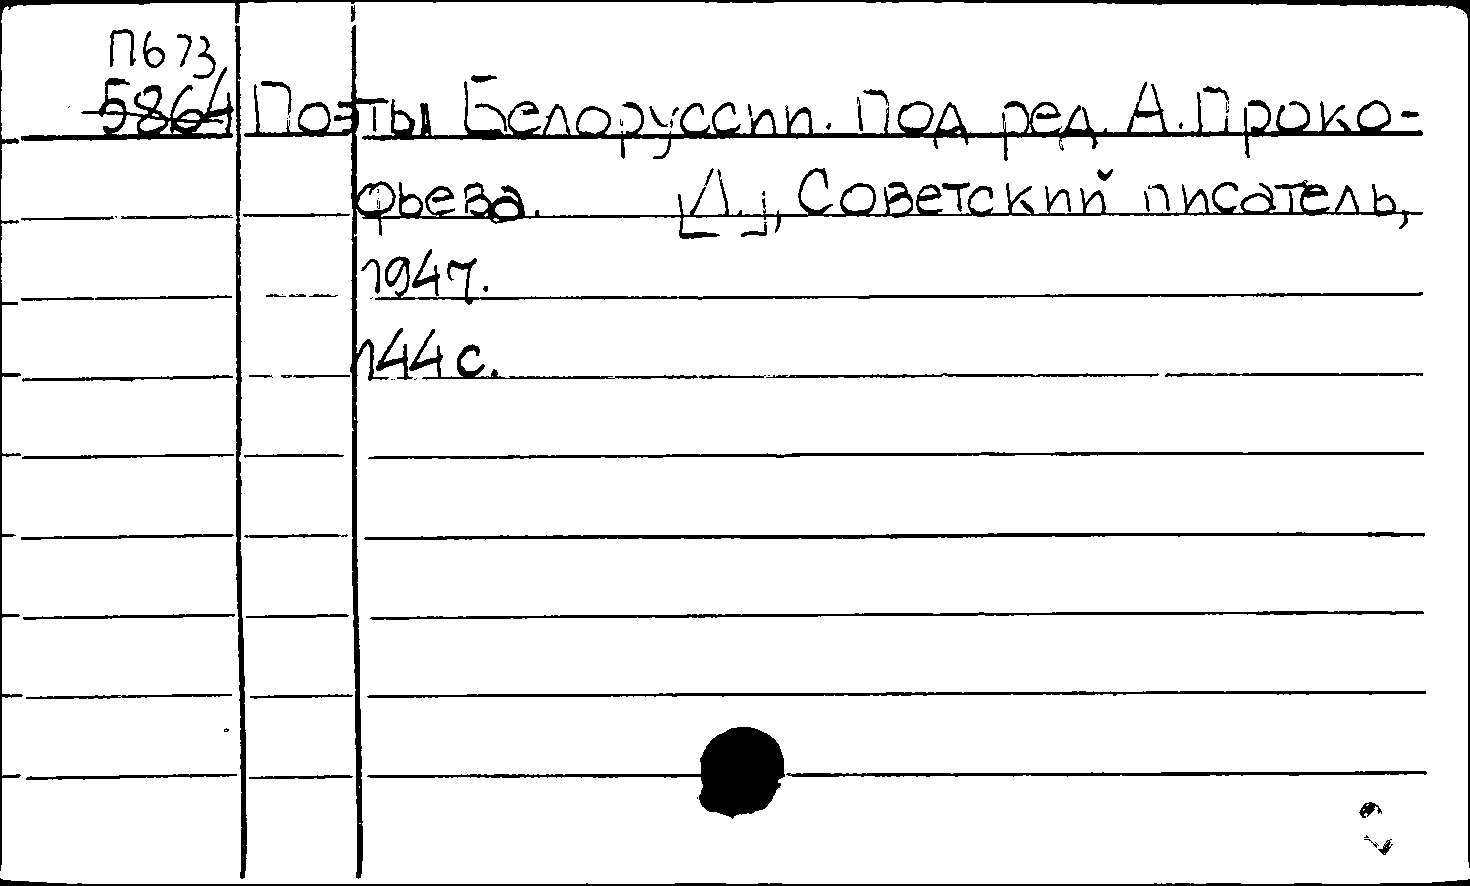 П673
5864 Поэты Белоруссии. Под ред. А. Проко-
фьева. [Л.], Советский писатель,
1947.
144 с.